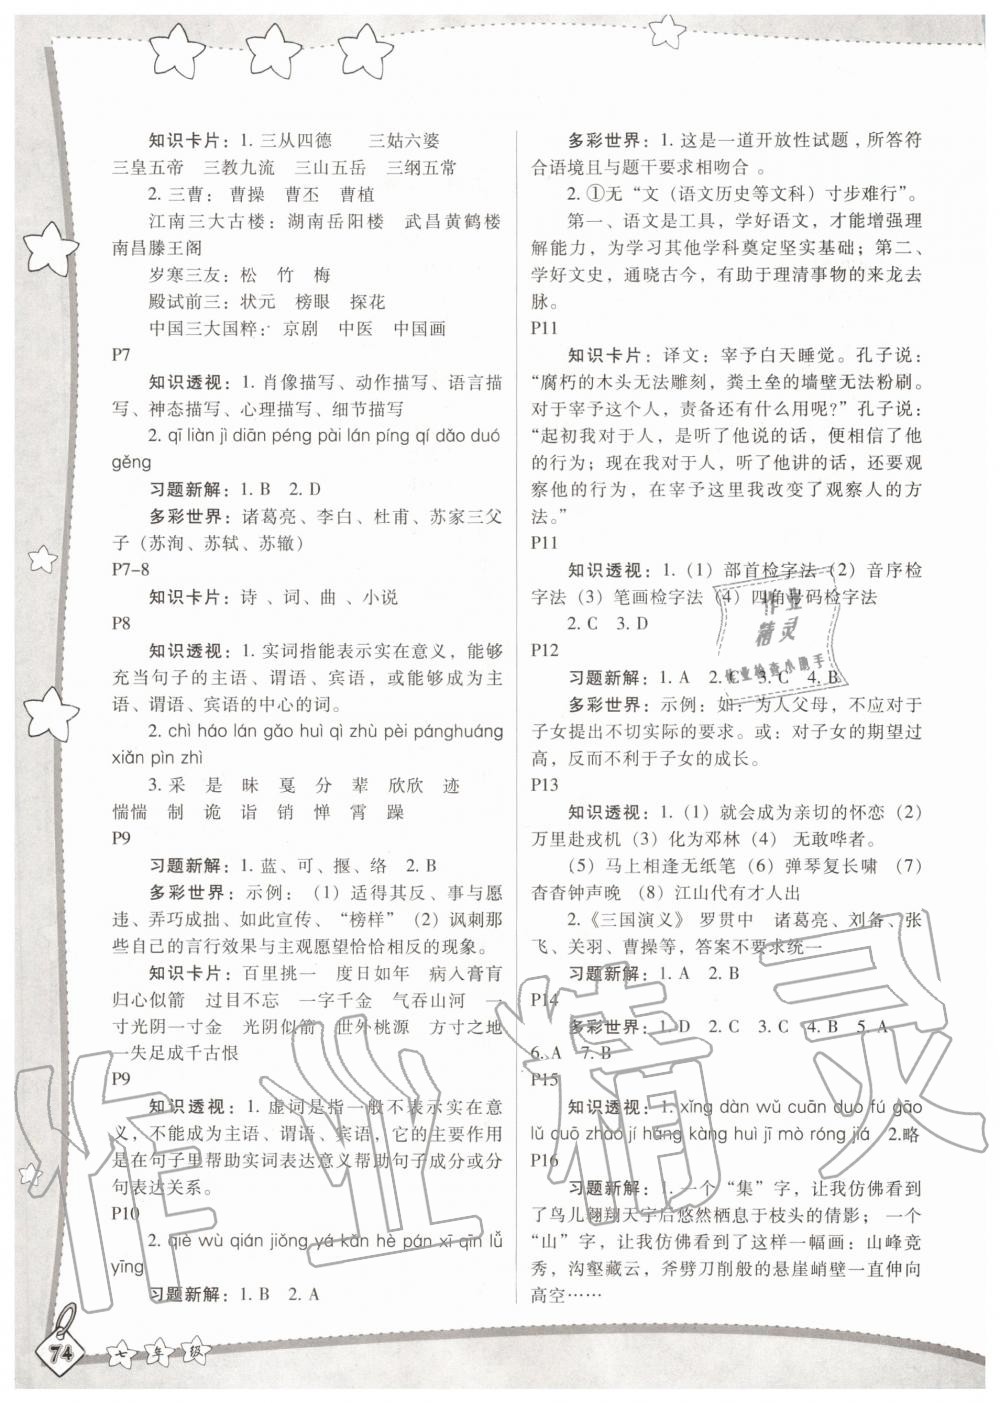 知识卡片：1. 三从四德　三姑六婆
三皇五帝　三教九流　三山五岳　三纲五常
2. 三曹：曹操　曹丕　曹植
江南三大古楼：湖南岳阳楼　武昌黄鹤楼
南昌滕王阁
岁寒三友：松　竹　梅
殿试前三：状元　榜眼　探花
中国三大国粹：京剧　中医　中国画
P7
知识透视：1. 肖像描写、动作描写、语言描
写、神态描写、心理描写、细节描写
2. qī liàn jì diān péng pài lán píng qí dǎo duó
gěng
习题新解：1. B　2. D
多彩世界：诸葛亮、李白、杜甫、苏家三父
子（苏洵、苏轼、苏辙）
P7-8
知识卡片：诗 、词、曲 、小说
P8
知识透视：1. 实词指能表示实在意义，能够
充当句子的主语、谓语、宾语，或能够成为主
语、谓语、宾语的中心的词。
2. chì háo lán gǎo huì qì zhù pèi pánghuáng
xiǎn pìn zhì
3. 采　是　昧　戛　分　辈　欣欣　迹
惴惴　制　诡　诣　销　惮　霄　躁
P9
习题新解：1. 蓝、可、揠、络　2. B
多彩世界：示例：（1）适得其反、事与愿
违、弄巧成拙、如此宣传、“榜样”（2）讽刺那
些自己的言行效果与主观愿望恰恰相反的现象。
知识卡片：百里挑一　度日如年　病入膏肓
归心似箭　过目不忘　一字千金　气吞山河　一
寸光阴一寸金　光阴似箭　世外桃源　方寸之地
一失足成千古恨
P9
知识透视：1. 虚词是指一般不表示实在意
义，不能成为主语、谓语、宾语，它的主要作用
是在句子里帮助实词表达意义帮助句子成分或分
句表达关系。
P10
2. qiè wù qián jiǒng yá kǎn hè pán xī qīn lǚ
yīng
习题新解：1. B　2. A
74
七年级
多彩世界：1. 这是一道开放性试题 ，所答符
合语境且与题干要求相吻合 。
2. ①无“文（语文历史等文科）寸步难行”。
第一、语文是工具，学好语文，才能增强理
解能力，为学习其他学科奠定坚实基础；第二、
学好文史，通晓古今，有助于理清事物的来龙去
脉。
P11
知识卡片：译文：宰予白天睡觉。孔子说：
“腐朽的木头无法雕刻，粪土垒的墙壁无法粉刷。
对于宰予这个人，责备还有什么用呢?”孔子说：
“起初我对于人，是听了他说的话，便相信了他
的行为；现在我对于人，听了他讲的话，还要观
察他的行为，在宰予这里我改变了观察人的方
法。”
P11
知识透视：1.（1）部首检字法（2）音序检
字法（3）笔画检字法（4）四角号码检字法
2. C　3. D
P12
习题新解：1. A　2. C　3. C　4. B
多彩世界：示例：如：为人父母，不应对于
子女提出不切实际的要求。或：对子女的期望过
高，反而不利于子女的成长。
P13
知识透视：1.（1）就会成为亲切的怀恋（2）
万里赴戎机（3）化为邓林（4） 无敢哗者。
（5）马上相逢无纸笔（6）弹琴复长啸 （7）
杳杳钟声晚 （8）江山代有才人出
2.《三国演义》 罗贯中　诸葛亮、刘备、张
飞、关羽、曹操等，答案不要求统一
习题新解：1. A　2. B
P14
多彩世界：1. D　2. C　3. C　4. B　5. A
6. A　7. B
P15
知识透视：1. xǐng dàn wǔ cuān duo fú gāo
lǔ guō zhào jí háng kàng huì jī mò róng jiá　2.略
P16
习题新解：1. 一个“集”字，让我仿佛看到
了鸟儿翱翔天宇后悠然栖息于枝头的倩影； 一个
“山”字，让我仿佛看到了这样一幅画：山峰竞
秀，沟壑藏云，斧劈刀削般的悬崖峭壁一直伸向
高空……
作业
精灵
作业检查小助手
作业精灵